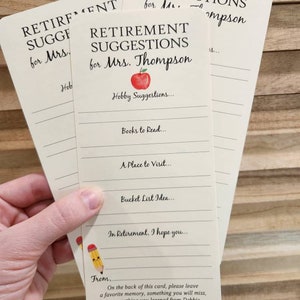 RETIREMENT
SUGGESTIONS
for Mrs. Thompson
Hobby Suggestions...
Books to Read...
A Place to Visit...
Bucket List Idea...
In Retirement, I hope you...
From,
On the back of this card, please leave
a favorite memory, something you will miss,
RETIREMENT
SUGGESTIONS
for Mrs.
Thompson